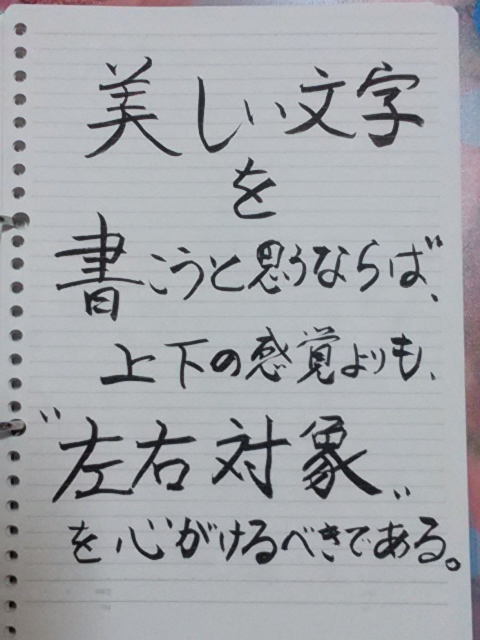 美しい文字
を
書こうと思うならば、
上下の感覚よりも、
"左右対象"
を心がけるべきである。